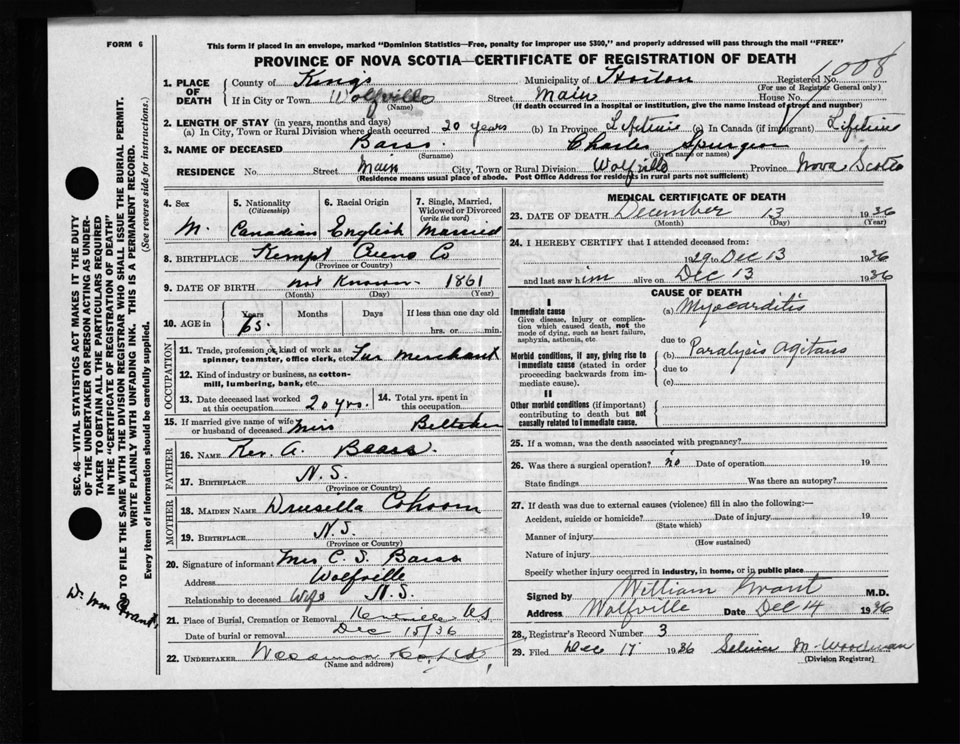 FORM 6
This form if placed in an envelope, marked "Dominion Statistics—Free, penalty for improper use $300," and properly addressed will pass through the mail "FREE"
PROVINCE OF NOVA SCOTIA—CERTIFICATE OF REGISTRATION OF DEATH
1. PLACE OF DEATH County of Kings Municipality of Horton Registered No. 1008
(For use of Registrar General only)
If in City or Town Wolfville Street Main House No.
(Name) (If death occurred in a hospital or institution, give the name instead of street and number)
2. LENGTH OF STAY (in years, months and days)
(a) In City, Town or Rural Division where death occurred 20 years (b) In Province Lifetime (c) In Canada (if immigrant) Lifetime
3. NAME OF DECEASED Barss. Charles Spurgeon
(Surname) (Given name or names)
RESIDENCE No. Street Main City, Town or Rural Division Wolfville Province Nova Scotia
(Residence means usual place of abode. Post Office Address for residents in rural parts not sufficient)
4. Sex M.
5. Nationality (Citizenship) Canadian
6. Racial Origin English
7. Single, Married, Widowed or Divorced (write the word) Married
8. BIRTHPLACE Kempt Queens Co
(Province or Country)
9. DATE OF BIRTH not Known 1861
(Month) (Day) (Year)
10. AGE in Years Months Days If less than one day old
hrs. or min.
OCCUPATION
11. Trade, profession or kind of work as spinner, teamster, office clerk, etc. Fur merchant
12. Kind of industry or business, as cotton-mill, lumbering, bank, etc.
13. Date deceased last worked at this occupation 20 yrs.
14. Total yrs. spent in this occupation
15. If married give name of wife or husband of deceased Miss
FATHER
16. NAME Rev. A. Barss.
17. BIRTHPLACE N.S.
(Province or Country)
MOTHER
18. MAIDEN NAME Drusella Cohoon
19. BIRTHPLACE N.S.
(Province or Country)
20. Signature of informant Mrs C. S. Barss
Address Wolfville
Relationship to deceased Wife N.S.
21. Place of Burial, Cremation or Removal
Date of burial or removal Dec 15/36
22. UNDERTAKER Woodman
(Name and address)
MEDICAL CERTIFICATE OF DEATH
23. DATE OF DEATH December 13 1936
(Month) (Day) (Year)
24. I HEREBY CERTIFY that I attended deceased from:
1929 Dec 13 1936
and last saw him alive on Dec 13 1936
CAUSE OF DEATH
I
Immediate cause
Give disease, injury or complication which caused death, not the mode of dying, such as heart failure, asphyxia, asthenia, etc
(a) Myocarditis
due to
Morbid conditions, if any, giving rise to immediate cause (stated in order proceeding backwards from immediate cause).
(b) Paralysis Agitans
due to
(c)
II
Other morbid conditions (if important) contributing to death but not causally related to immediate cause.
25. If a woman, was the death associated with pregnancy?
26. Was there a surgical operation? no Date of operation 19
State findings Was there an autopsy?
27. If death was due to external causes (violence) fill in also the following:—
Accident, suicide or homicide? Date of injury 19
(State which)
Manner of injury
(How sustained)
Nature of injury
Specify whether injury occurred in industry, in home, or in public place
Signed by William Grant M.D.
Address Wolfville Date Dec 14 1936
28. Registrar's Record Number 3
29. Filed Dec 17 1936 M. Woodman
(Division Registrar)
SEC. 46—VITAL STATISTICS ACT MAKES IT THE DUTY
OF THE UNDERTAKER OR PERSON ACTING AS UNDER-
TAKER TO OBTAIN ALL THE PARTICULARS REQUIRED
IN THE "CERTIFICATE OF REGISTRATION OF DEATH"
TO FILE THE SAME WITH THE DIVISION REGISTRAR WHO SHALL ISSUE THE BURIAL PERMIT.
WRITE PLAINLY WITH UNFADING INK. THIS IS A PERMANENT RECORD.
Every item of information should be carefully supplied. (See reverse side for instructions.)
Dr. Wm Grant,